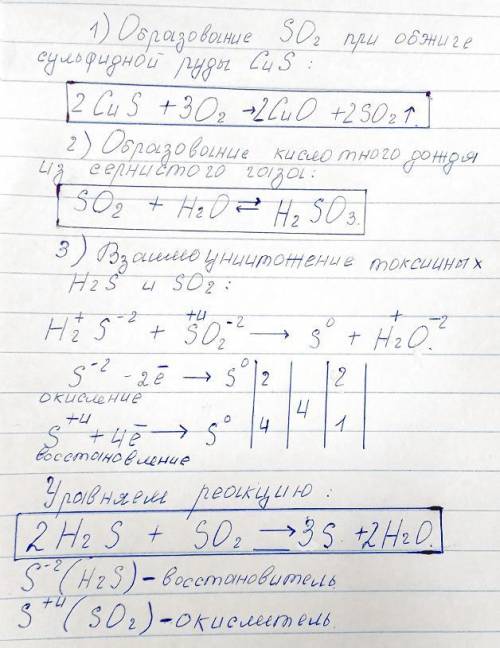 1) Образование SO2 при обжиге
сульфидной руды CuS :
2CuS + 3O2 → 2CuO + 2SO2↑.
2) Образование кислотного дождя
из сернистого газа:
SO2 + H2O ⇄ H2SO3.
3) Взаимоуничтожение токсичных
H2S и SO2 :
H2⁺S⁻² + S⁺⁴O2⁻² → S⁰ + H2⁺O⁻².
S⁻² - 2ē → S⁰ | 2 | | 2 |
окисление
4
S⁺⁴ + 4ē → S⁰ | 4 | | 1 |
восстановление
Уравняем реакцию :
2H2S + SO2 → 3S + 2H2O.
S⁻² (H2S) - восстановитель
S⁺⁴ (SO2) - окислитель.